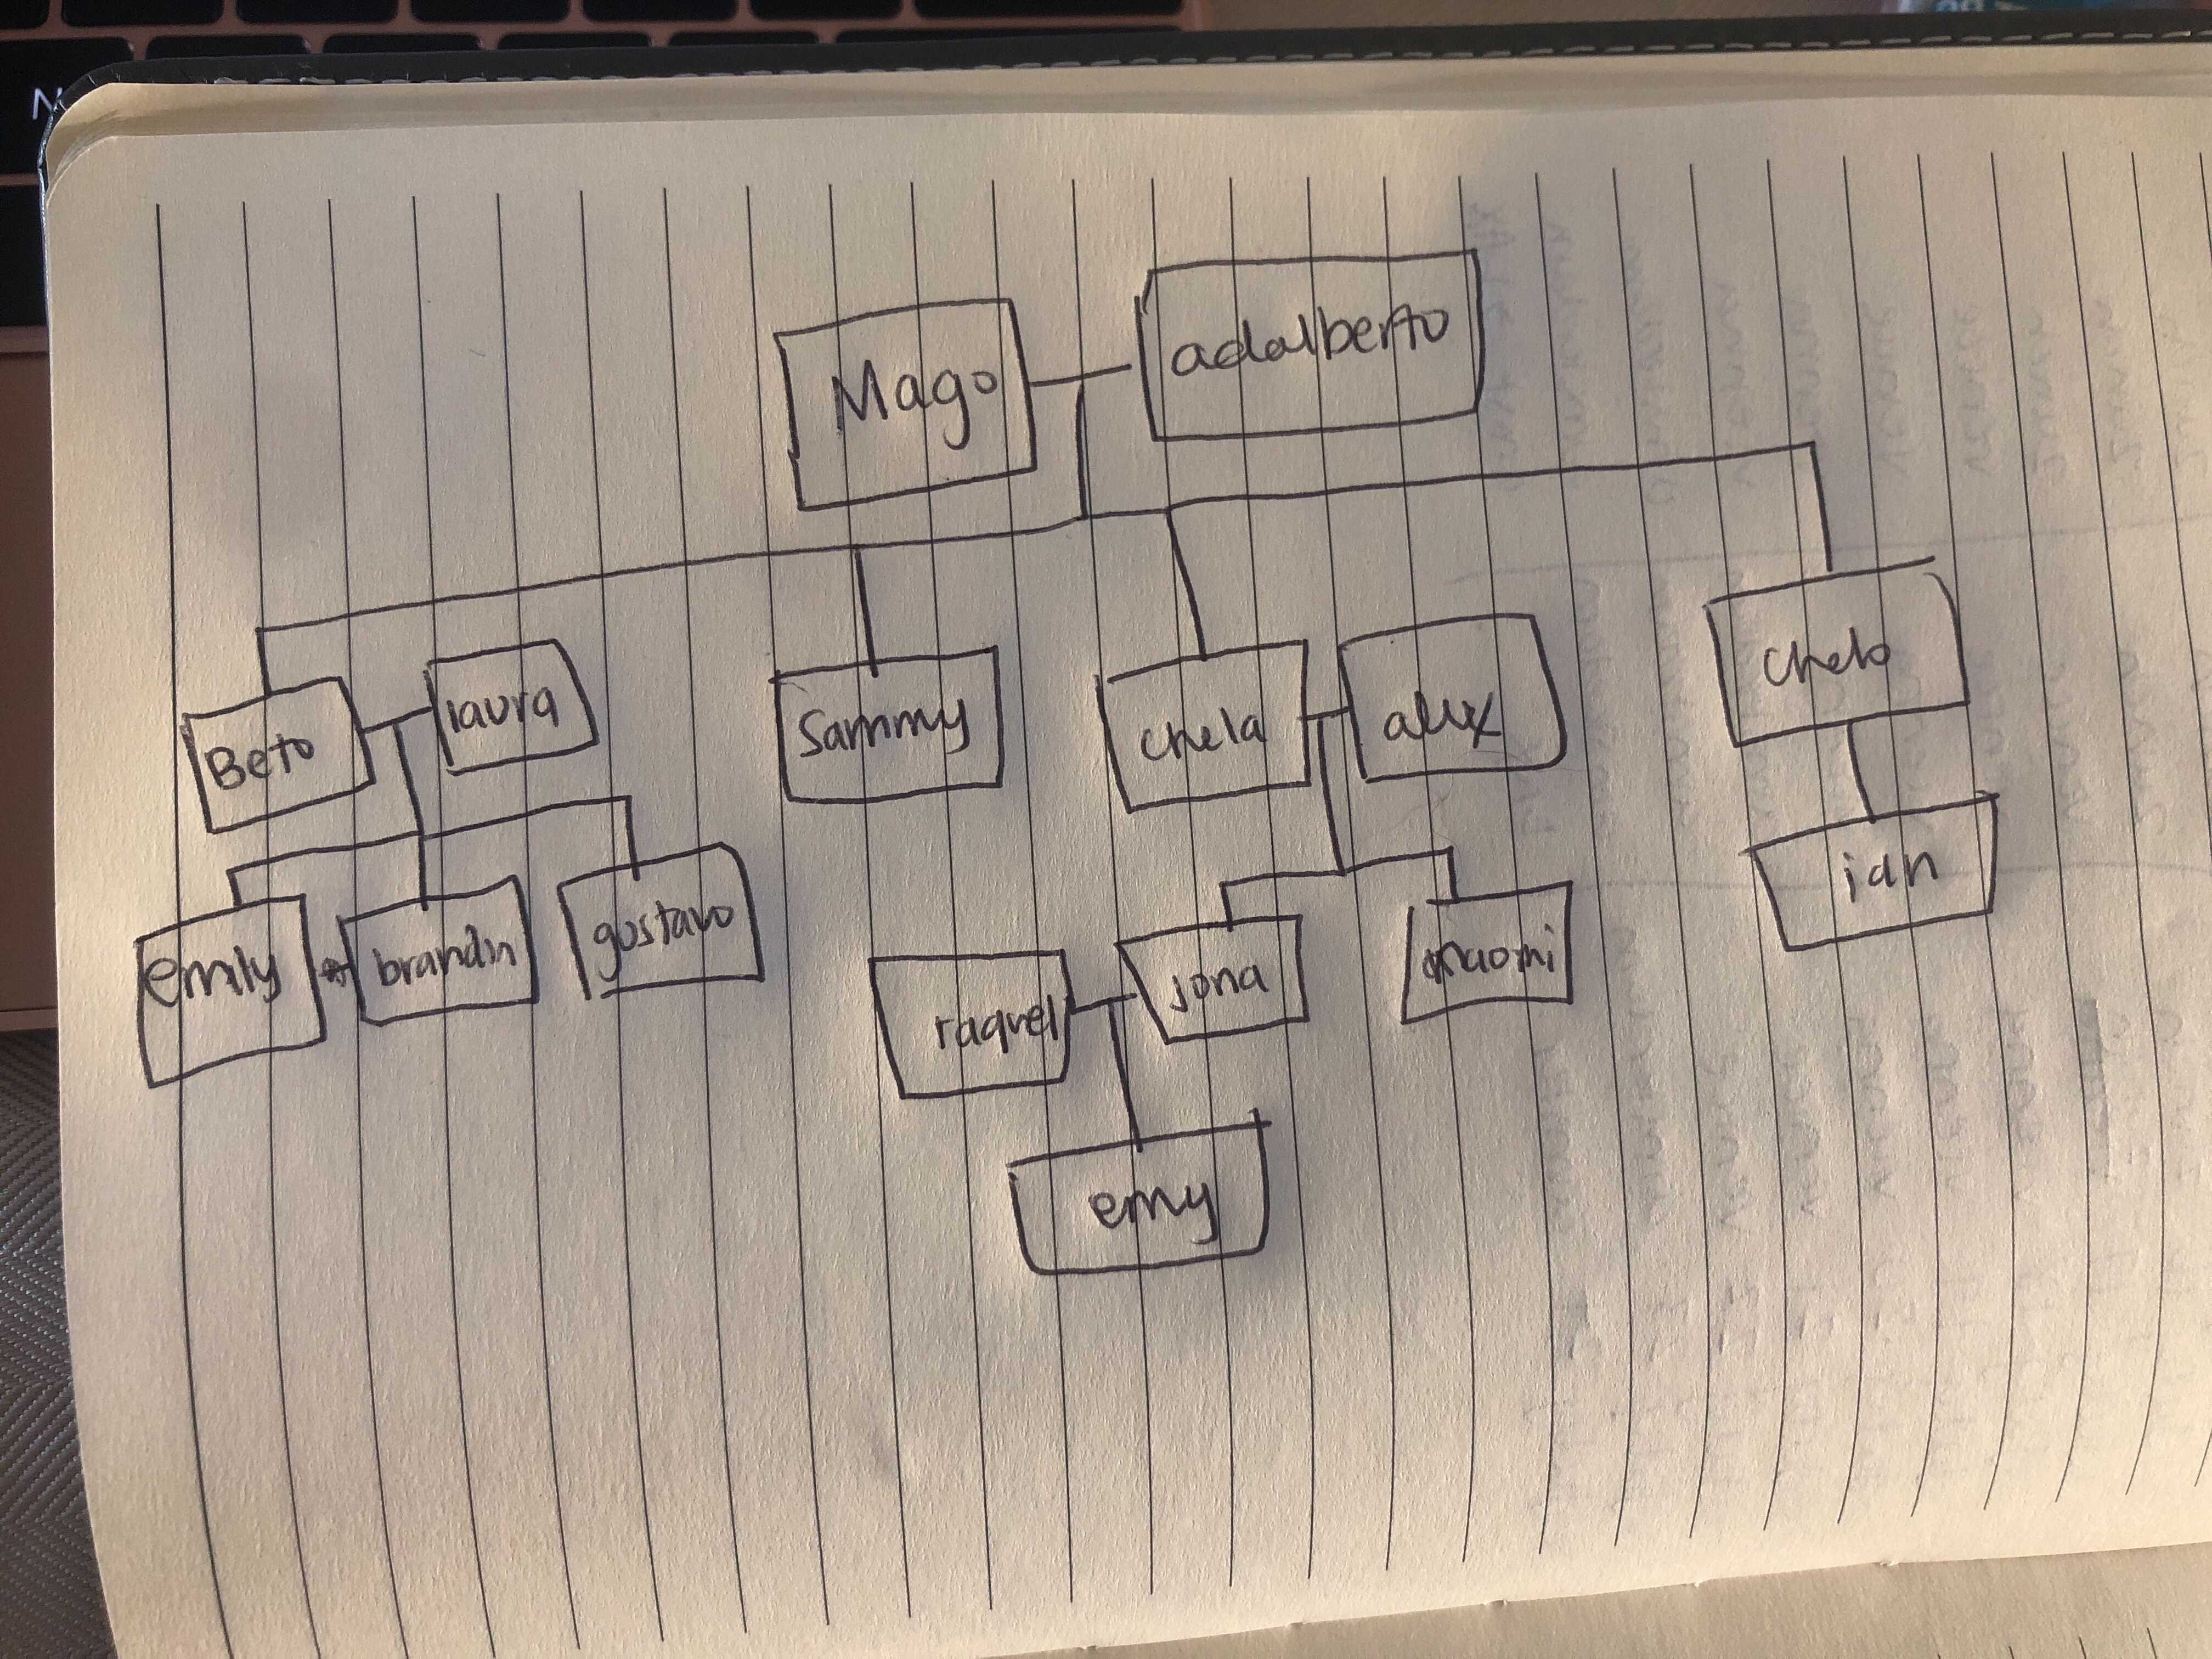 Mago
adalberto
Beto
laura
Sammy
chela
alex
chelo
emily
brandn
gustavo
raquel
jona
naomi
ian
emy